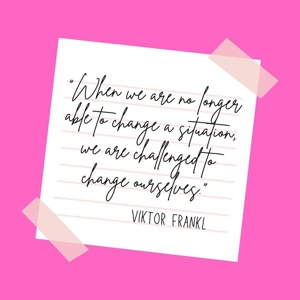 "When we are no longer
able to change a situation,
we are challenged to
change ourselves."
VIKTOR FRANKL